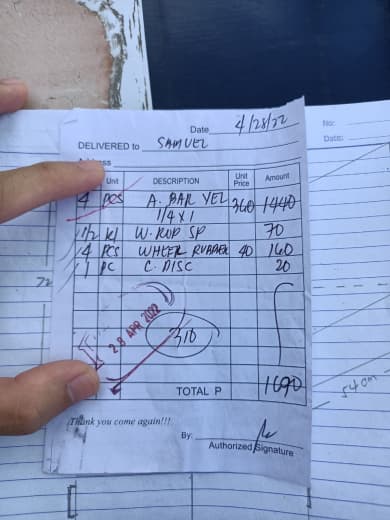 Date 4/28/22
DELIVERED to SAMUEL
Address
Unit DESCRIPTION Unit Price Amount
4 PCS A. BAR YEL 360 1440
1/4 x 1
1/2 kl W. ROD SP 70
4 PCS WHEEL RUBBER 40 160
1 PC C. DISC 20
28 APR 2022
310
TOTAL P 1690
Thank you come again!!!
By:
Authorized Signature
No:
Date:
72
54 cm